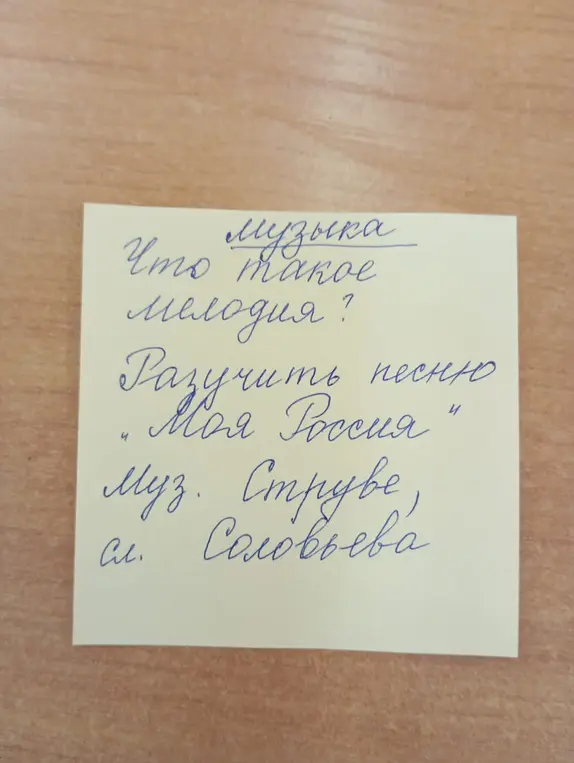 Музыка
Что такое
мелодия?
Разучить песню
„Моя Россия"
Муз. Струве,
сл. Соловьева